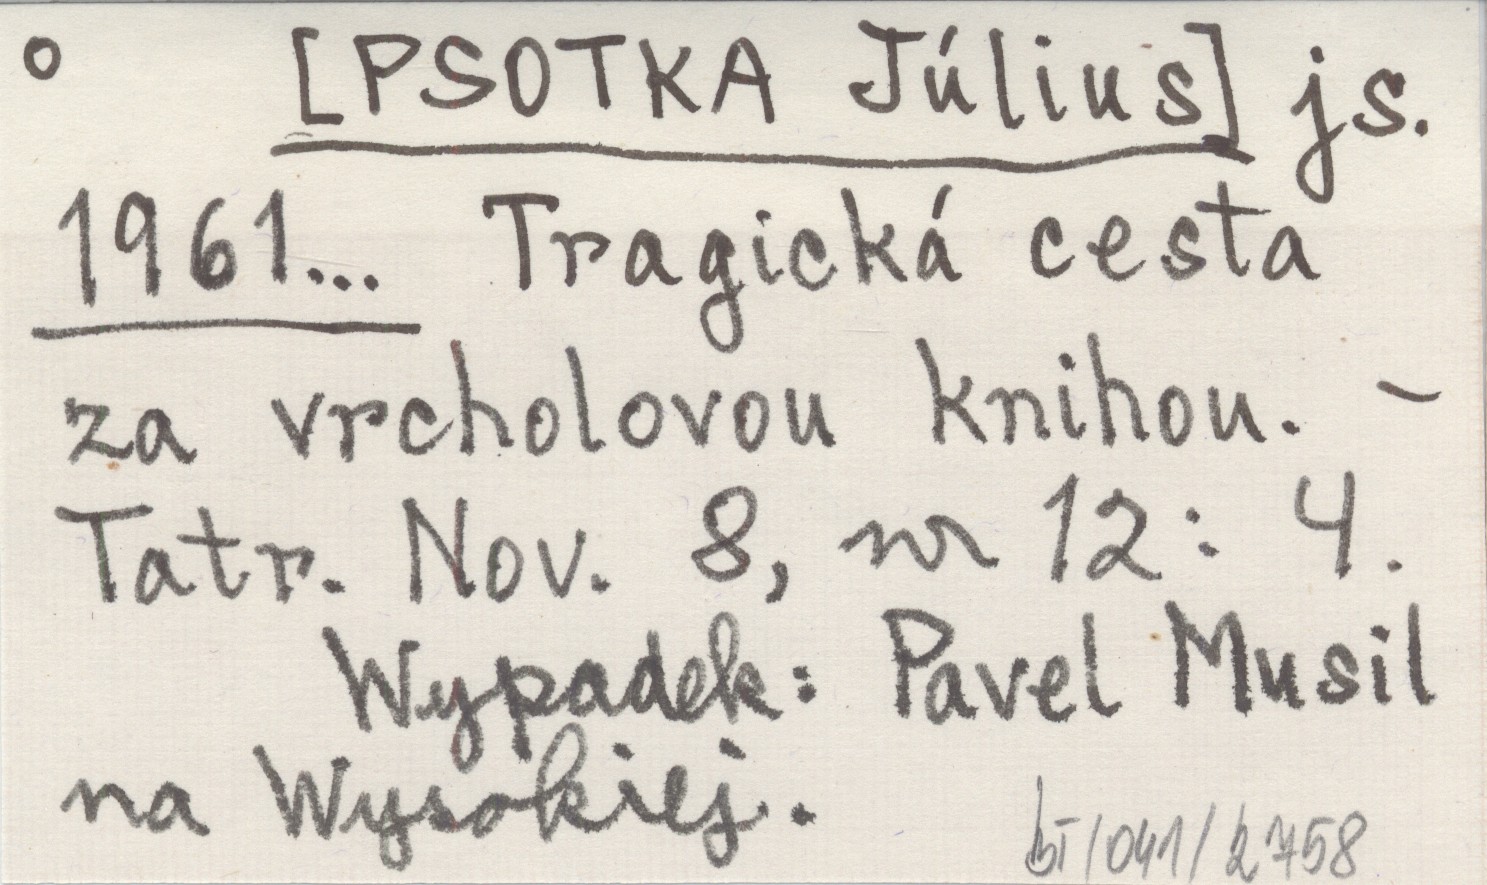 o [PSOTKA Július] js.
1961... Tragická cesta
za vrcholovou knihou. -
Tatr. Nov. 8, nr 12: 4.
Wypadek: Pavel Musil
na Wysokiej.
bT/041/2758